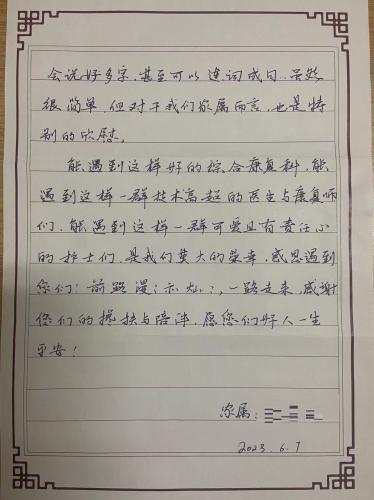 会说好多字,甚至可以连词成句。虽然
很简单,但对于我们家属而言,也是特
别的欣慰。
能遇到这样好的综合康复科,能
遇到这样一群技术高超的医生与康复师
们,能遇到这样一群可爱且有责任心
的护士们,是我们莫大的荣幸,感恩遇到
您们!前路漫:亦灿:,一路走来,感谢
您们的搀扶与陪伴,愿您们好人一生
平安!
家属:
2023.6.7